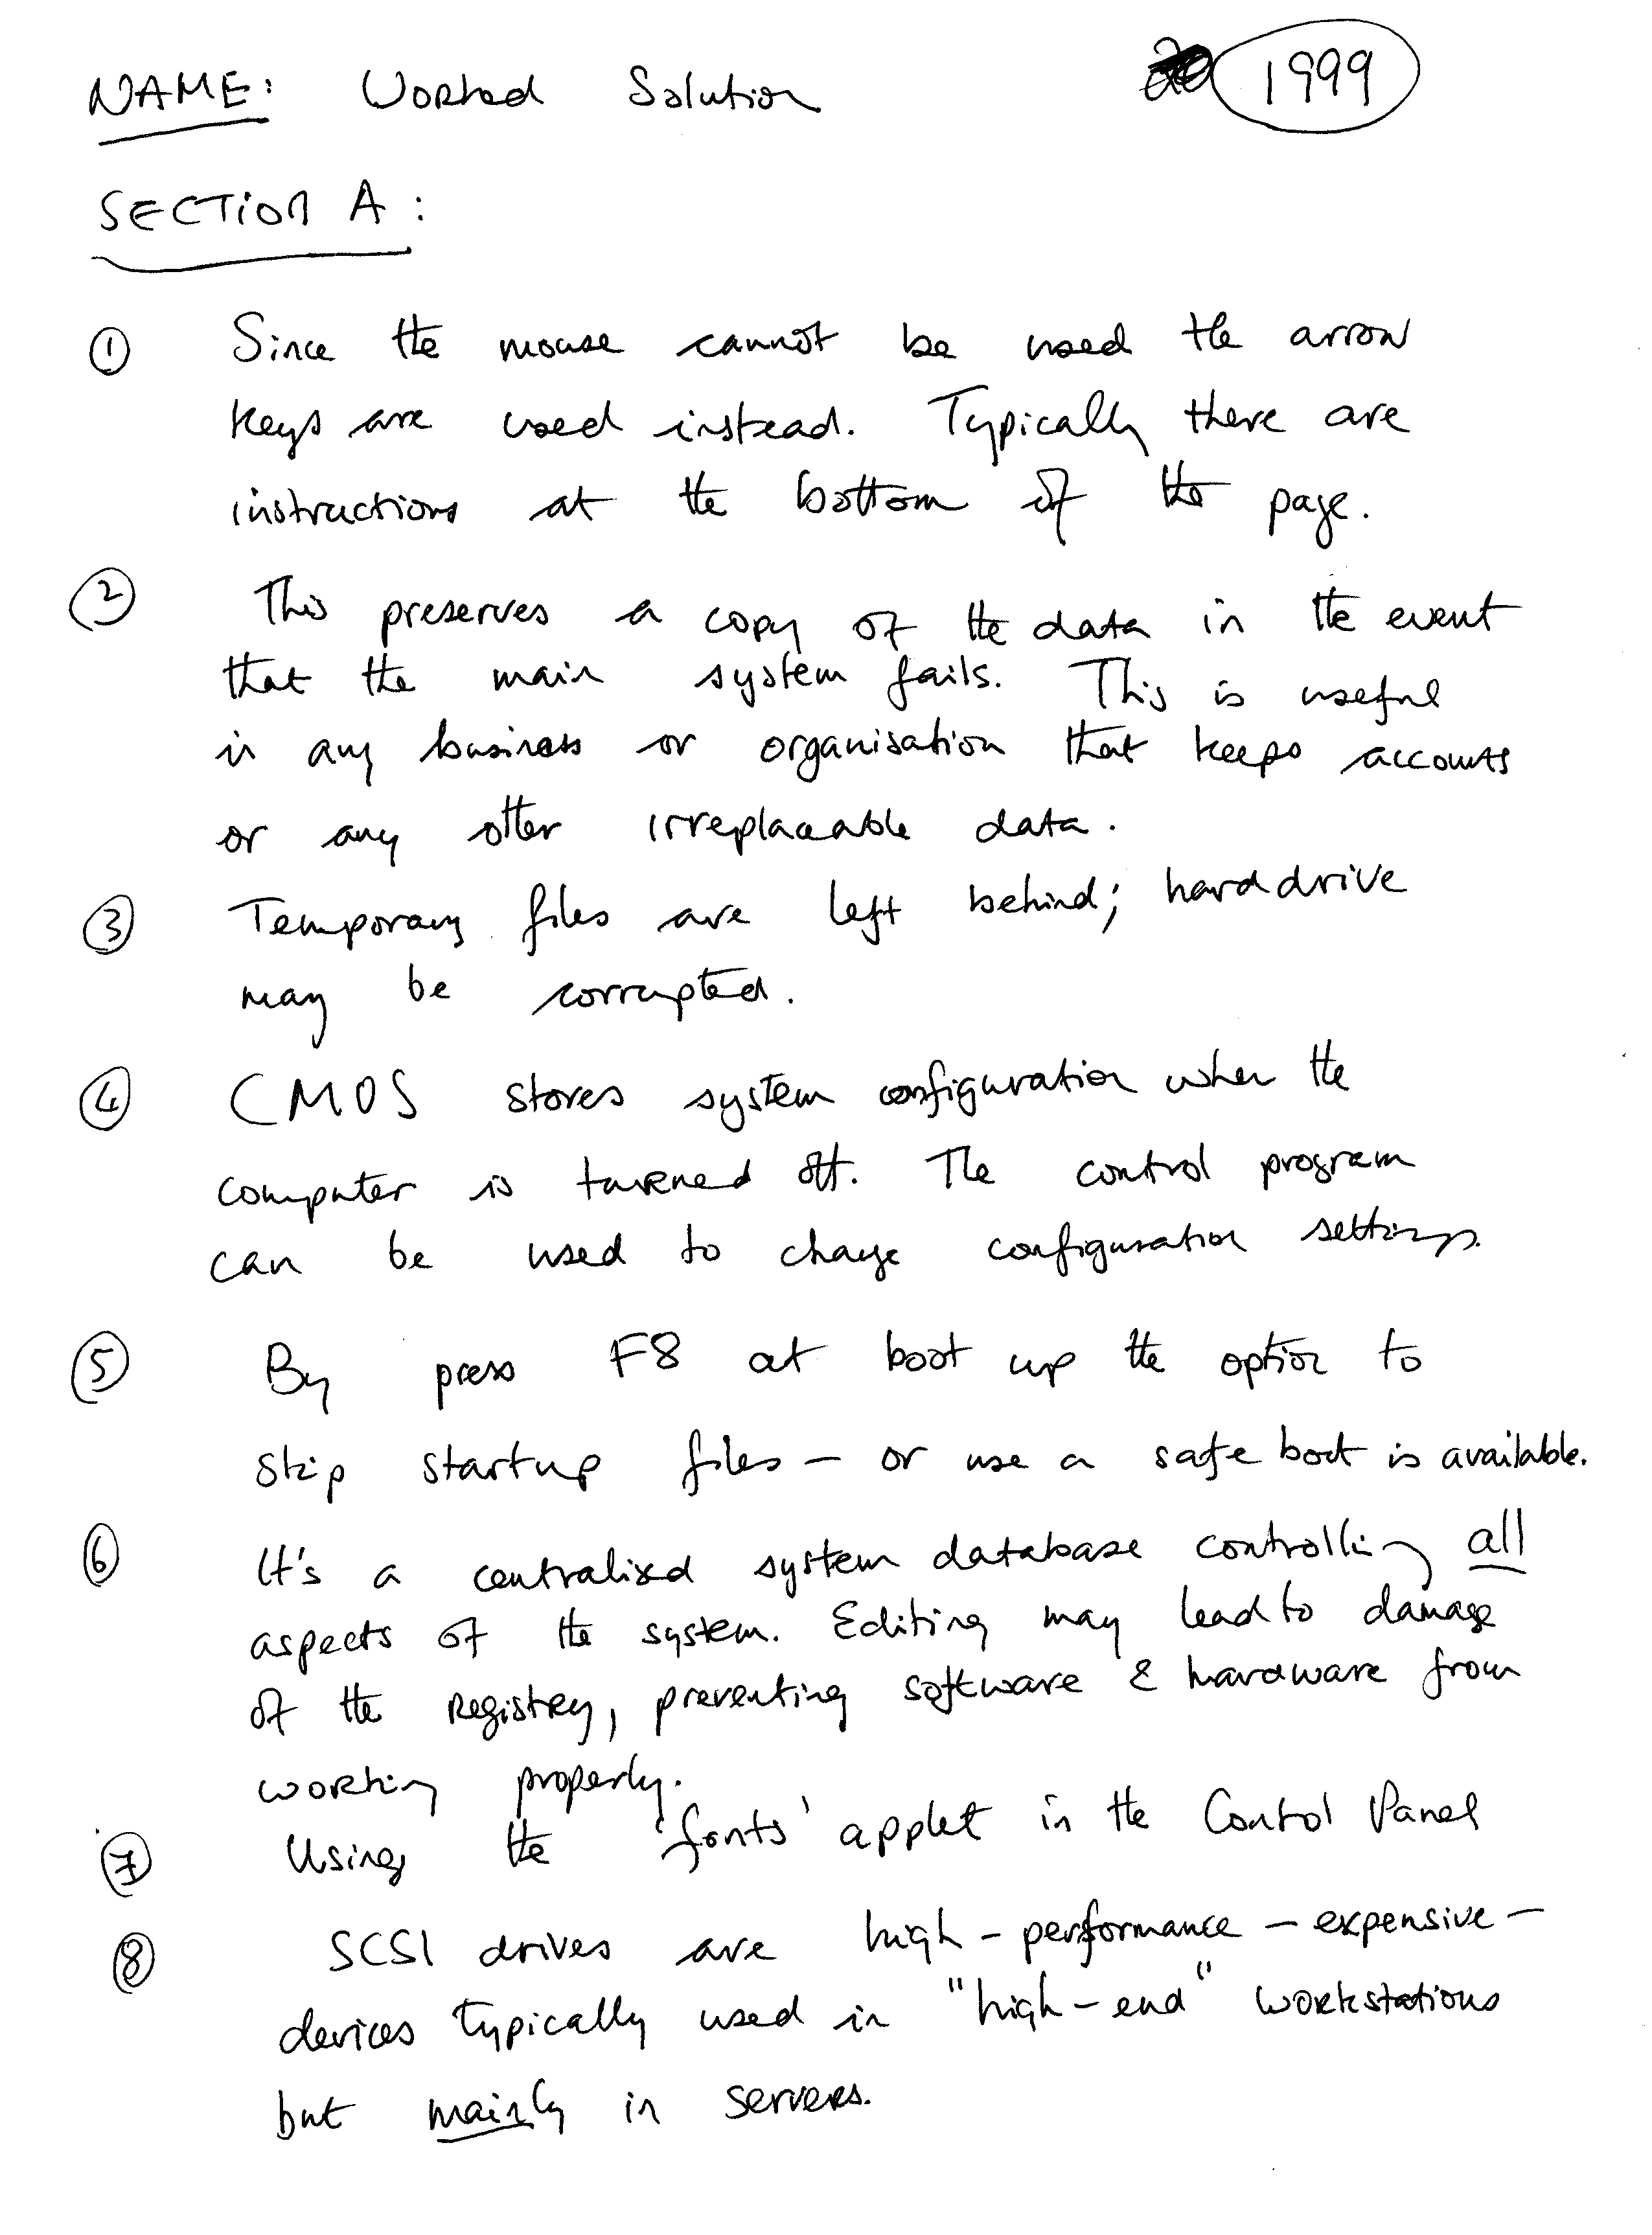 NAME: Worked Solution 1999
SECTION A:
① Since the mouse cannot be used the arrow
keys are used instead. Typically there are
instructions at the bottom of the page.
② This preserves a copy of the data in the event
that the main system fails. This is useful
in any business or organisation that keeps accounts
or any other irreplaceable data.
③ Temporary files are left behind; hard drive
may be corrupted.
④ CMOS stores system configuration when the
computer is turned off. The control program
can be used to change configuration settings.
⑤ By press F8 at boot up the option to
skip startup files - or use a safe boot is available.
⑥ It's a centralised system database controlling all
aspects of the system. Editing may lead to damage
of the registry, preventing software & hardware from
working properly.
⑦ Using the 'fonts' applet in the Control Panel
⑧ SCSI drives are high-performance - expensive -
devices typically used in "high-end" workstations
but mainly in servers.